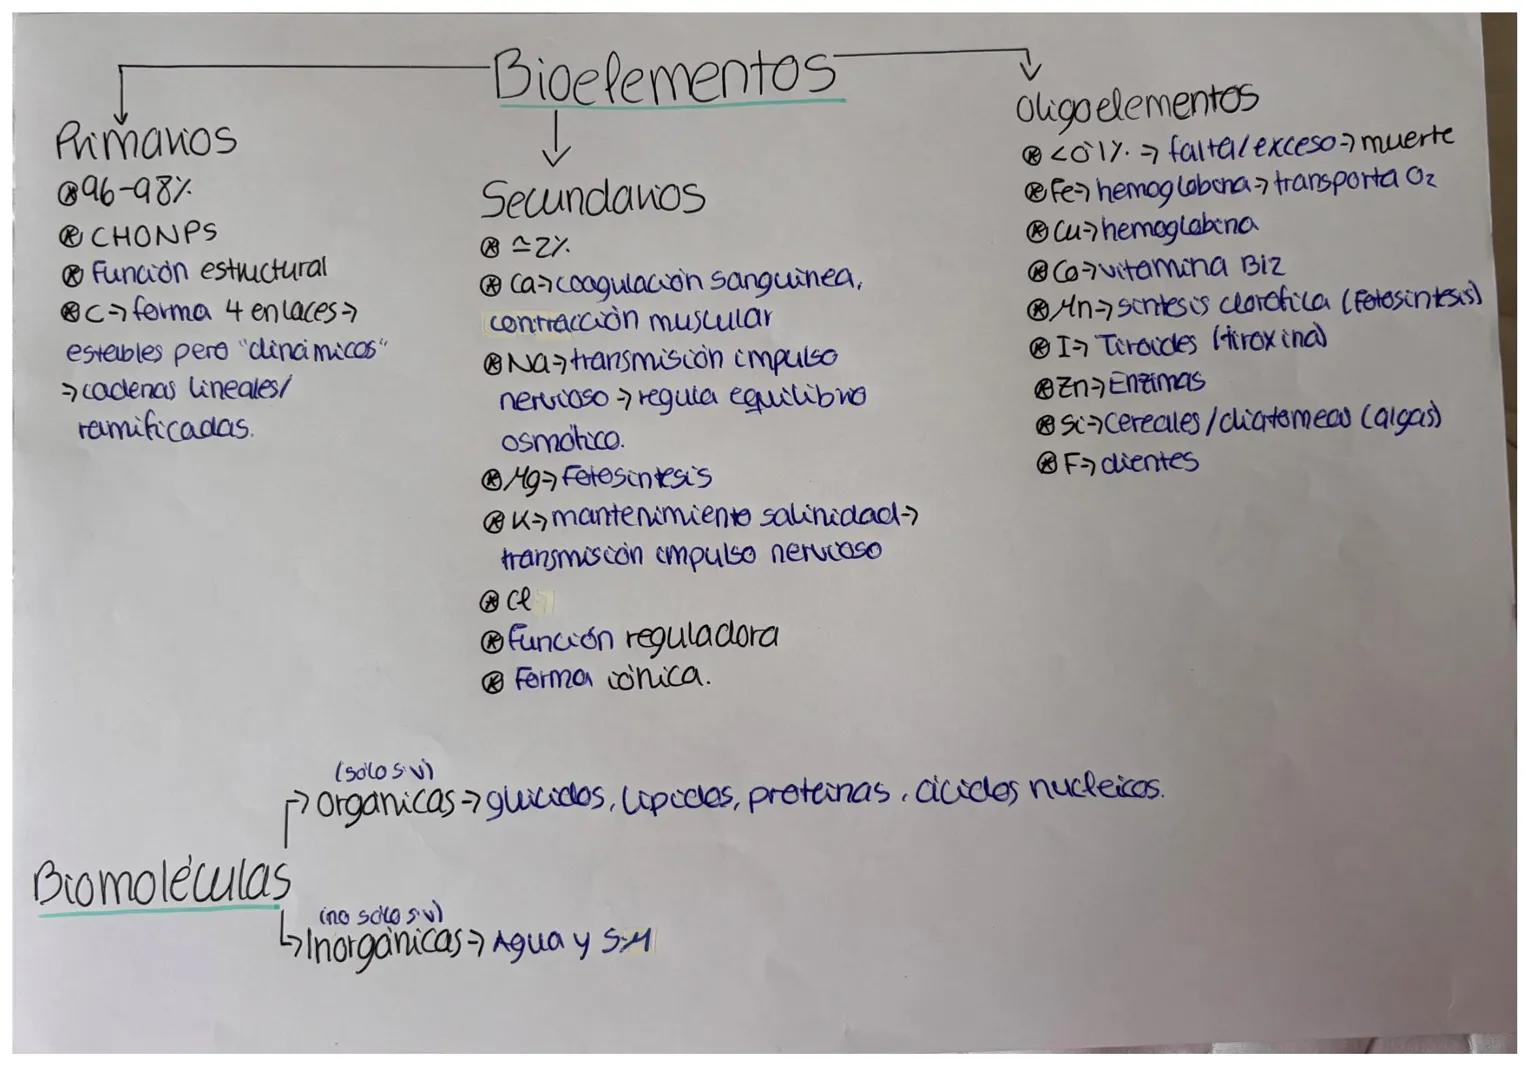 Bioelementos
Primarios
96-98%
CHONPS
Función estructural
C→forma 4 enlaces→
estables pero "dinámicos"
→cadenas lineales/
ramificadas.
Secundarios
≃2%
Ca→coagulación sanguinea,
contracción muscular
Na→transmisión impulso
nervioso→regula equilibrio
osmótico.
Mg→Fotosíntesis
K→mantenimiento salinidad→
transmisión impulso nervioso
Cl
Función reguladora
Forma iónica.
Oligoelementos
<0'1%.→falta/exceso→muerte
Fe→hemoglobina→transporta O₂
Cu→hemoglobina
Co→vitamina B12
Mn→síntesis clorofila (Fotosíntesis)
I→Tiroides (tiroxina)
Zn→Enzimas
Si→Cereales/diatomeas (algas)
F→dientes
Biomoléculas
(sólo s.v)
→Orgánicas→glúcidos, lípidos, proteínas, ácidos nucleicos.
(no sólo s.v)
→Inorgánicas→Agua y S.M